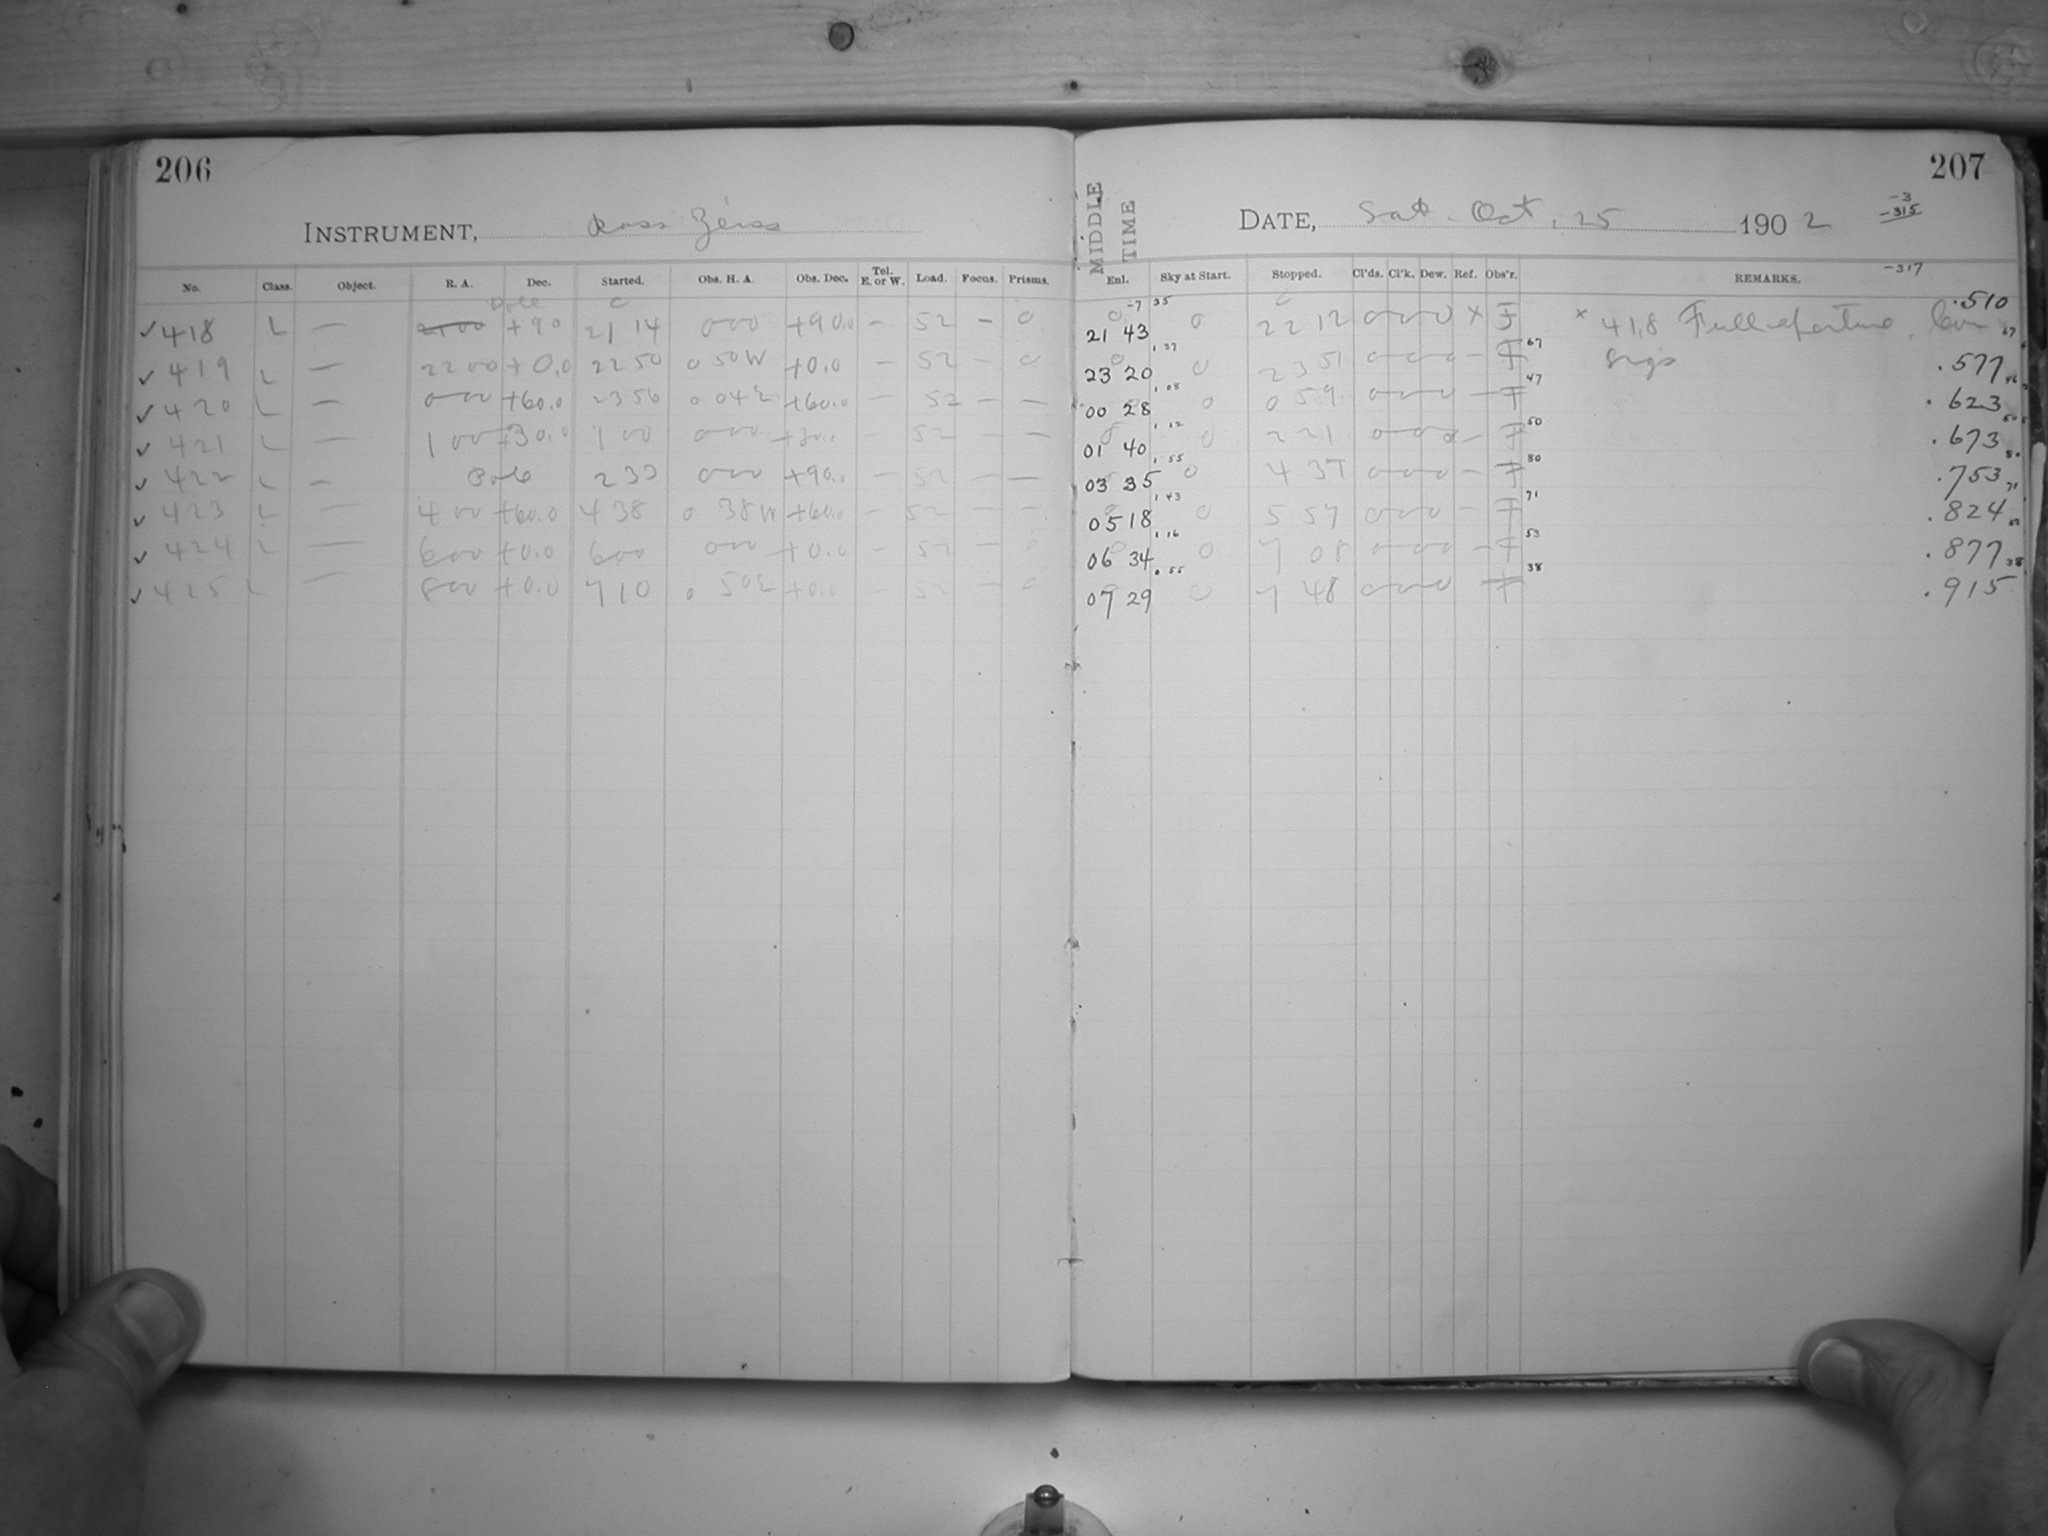 206
INSTRUMENT, Ross Zeiss
No. Class. Object. R. A. Dec. Started. Obs. H. A. Obs. Dec. Tel. E. or W. Load. Focus. Prisms.
Pole C
✓ 418 L — 2100 +90 21 14 000 +90.0 — 52 — 0
✓ 419 L — 2200 +0.0 2250 0 50W +0.0 — 52 — 0
✓ 420 L — 000 +60.0 2356 0 04E +60.0 — 52 — —
✓ 421 L — 1 00 +30.0 1 00 000 +30.0 — 52 — —
✓ 422 L — Pole 233 000 +90.0 — 52 — —
✓ 423 L — 400 +60.0 438 0 38W +60.0 — 52 — —
✓ 424 L — 600 +0.0 600 000 +0.0 — 52 — 0
✓ 425 L — 800 +0.0 710 0 50E +0.0 — 52 — 0
207
MIDDLE TIME
DATE, Sat. Oct. 25 1902
-3
-315
-317
Enl. Sky at Start. Stopped. Cl'ds. Cl'k. Dew. Ref. Obs'r. REMARKS.
0 -7 35 C
21 43 0 22 12 0 0 0 X F × 418 Full aperture .510
1.37 67 67
23 20 0 23 51 0 0 0 — F .577
1.08 47
00 28 0 0 59 0 0 0 — F .623
1.12 50
01 40 0 2 21 0 0 0 — F .673
1.55 80 80
03 35 0 4 37 0 0 0 — F .753
1.43 71 71
05 18 0 5 57 0 0 0 — F .824
1.16 53
06 34 0 7 08 0 0 0 — F .877
0.55 38 38
07 29 0 7 48 0 0 0 — F .915